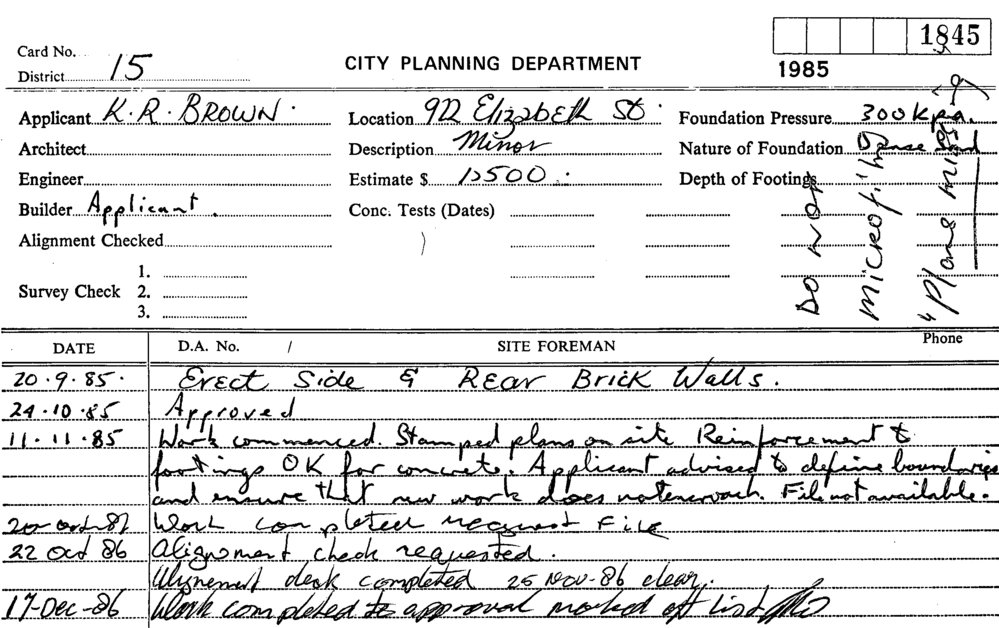 1845
Card No.
District 15
CITY PLANNING DEPARTMENT
1985
Applicant K.R. BROWN.
Location 922 Elizabeth St.
Foundation Pressure 300 kpa.
Architect
Description Minor
Nature of Foundation Dense Sand
Engineer
Estimate $ 1500
Depth of Footings
Builder Applicant.
Conc. Tests (Dates)
Alignment Checked
1.
Survey Check 2.
3.
DO NOT
MICROFILM
"Plans missing"
DATE D.A. No. / SITE FOREMAN Phone
20.9.85. Erect Side & Rear Brick Walls.
24.10.85 Approved
11.11.85 Work commenced. Stamped plans on site Reinforcement to
footings OK for concrete. Applicant advised to define boundaries
and ensure that new work does not encroach. File not available.
20 Oct 86 Work completed request File
22 Oct 86 Alignment check requested.
Alignement check completed 25 Nov-86 clear.
17-Dec-86 Work completed to approval marked off list